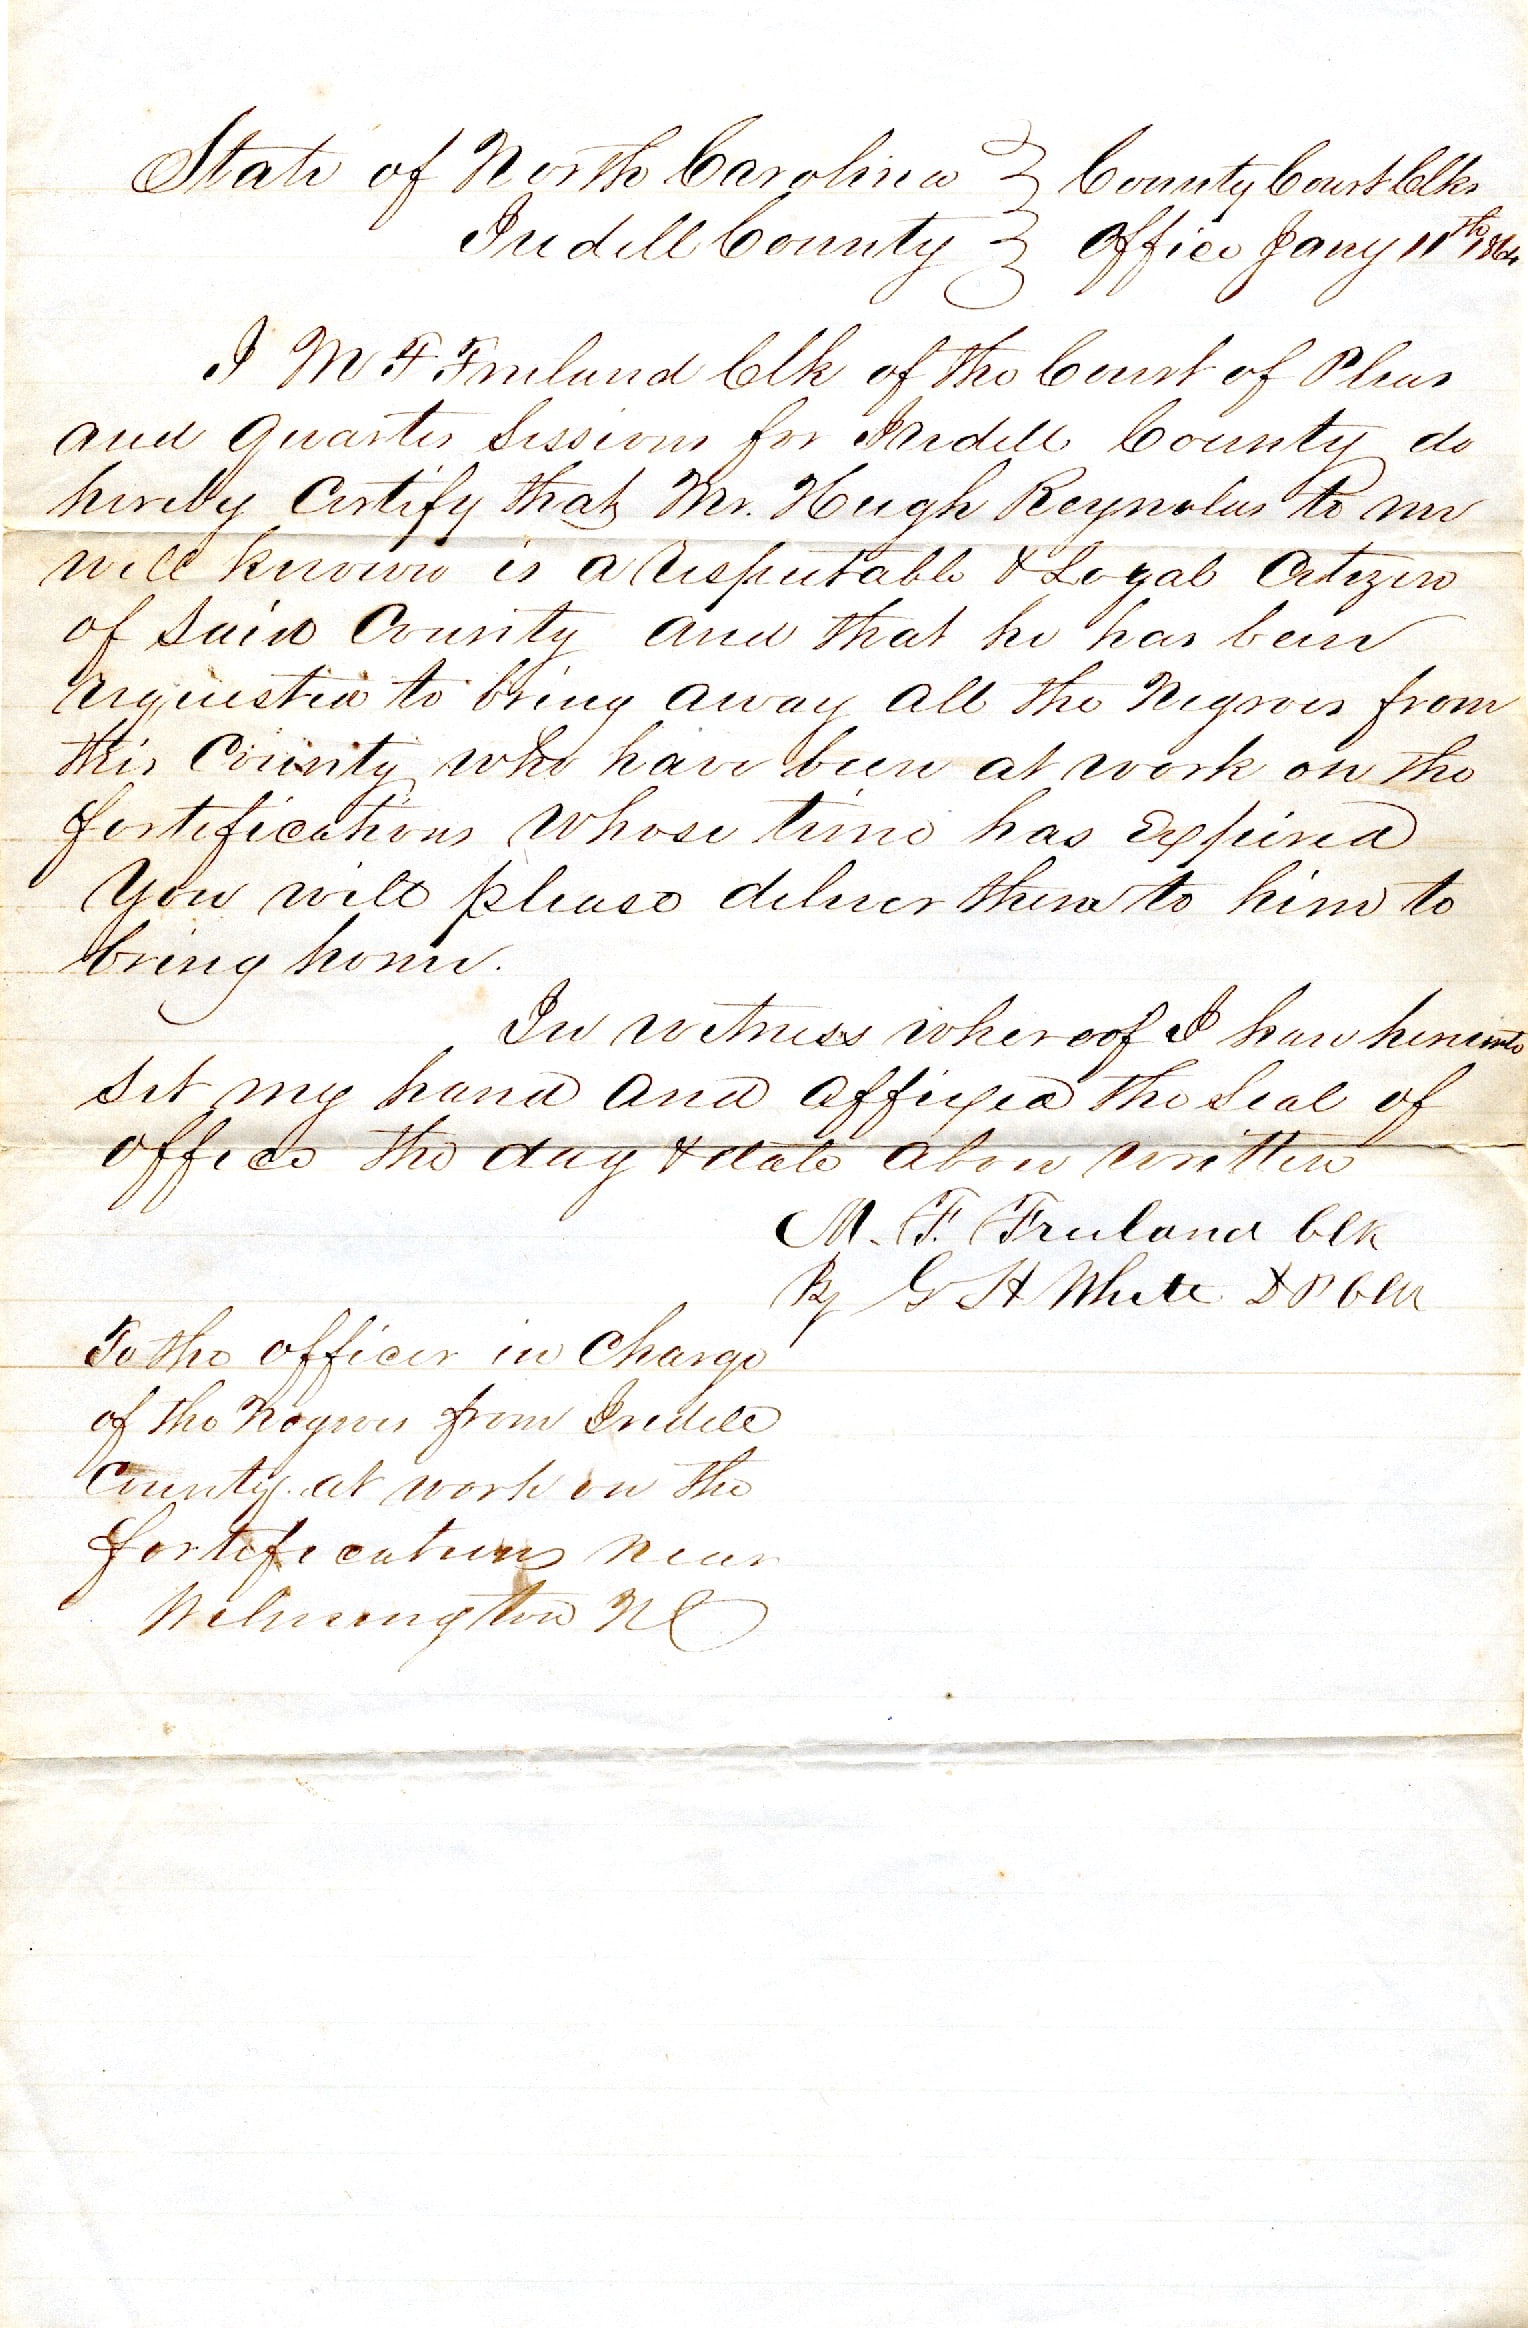 State of North Carolina } County Court Clks
Iredell County } Office Jany 11th 1864
I M F Freeland Clk of the Court of Pleas
and Quarter Sessions for Iredell County do
hereby Certify that Mr. Hugh Reynolds to me
well known is a respectable & Loyal Citizen
of Said County and that he has been
requested to bring away all the Negroes from
this County who have been at work on the
fortifications whose time has Expired
You will please deliver them to him to
bring home.
In witness whereof I have hereunto
Set my hand and affixed the Seal of
office the day & date above written
M. F. Freeland Clk
By G H White D P Clk
To the officer in Charge
of the Negroes from Iredell
County at work on the
fortifications near
Wilmington N C